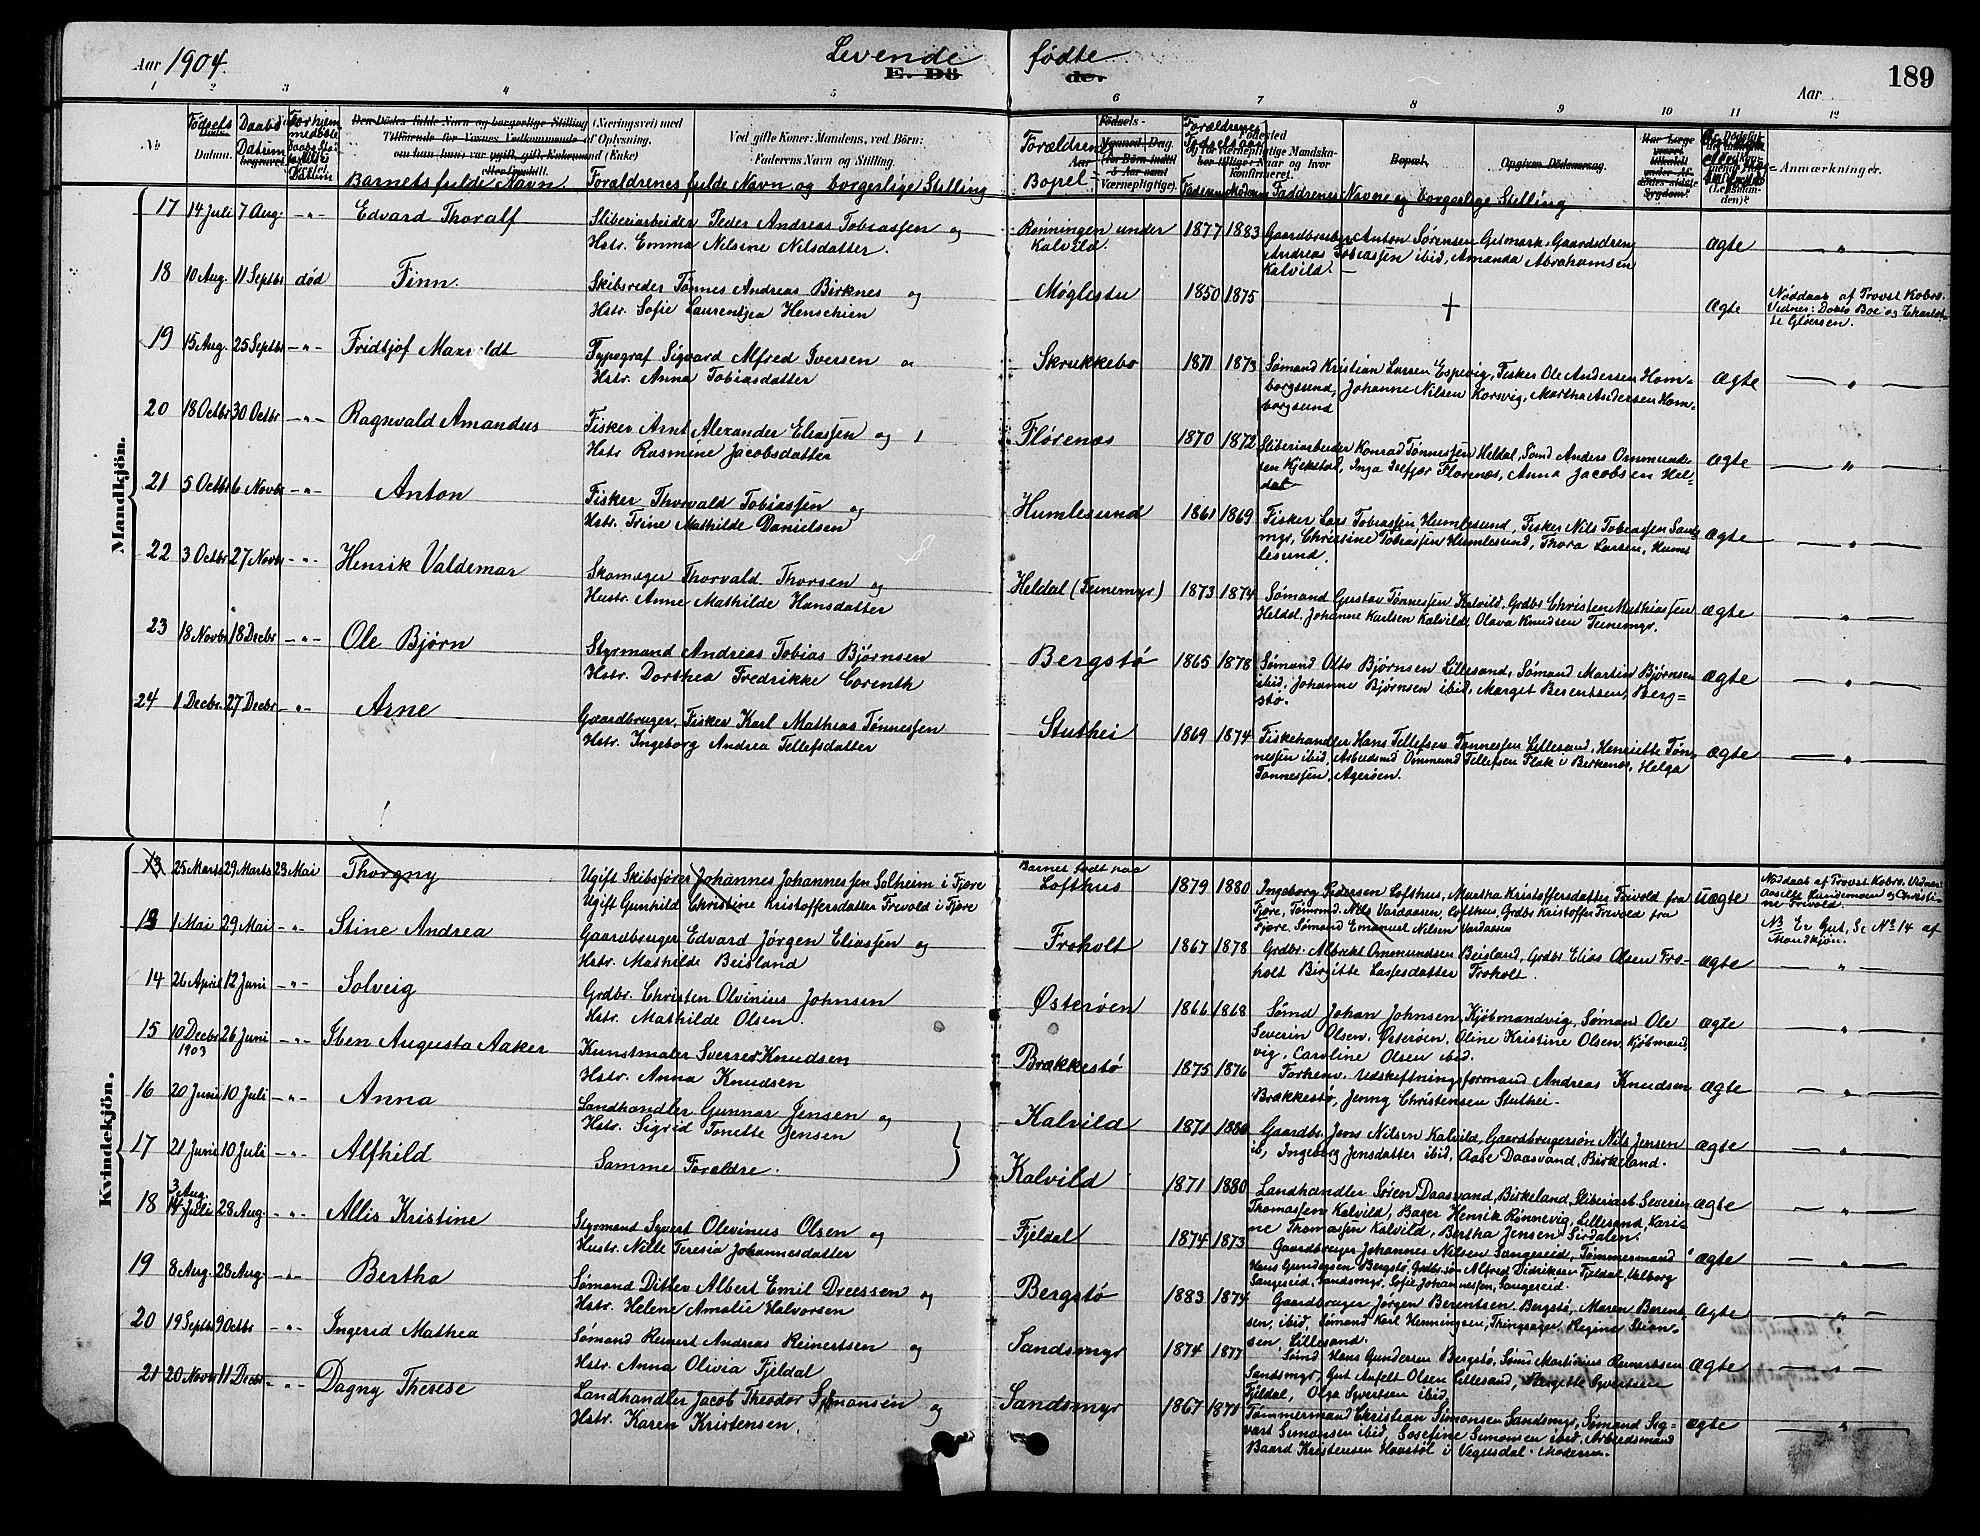 Aar 1904.
Levende fødte
E. Dö de.
Aar
189
1 2 3 4 5 6 7 8 9 10 11 12
No.
Fødsels Datum.
Daabs Datum
Barnets fulde Navn.
Forældrenes fulde Navn og borgerlige Stilling
Ved gifte Koner: Mandens, ved Børn:
Faderens Navn og Stilling.
Forældrenes Bopel
Forældrenes Fødselsaar
Faderens Moderens
Bopæl.
Opgiven Dödsaarsag.
Faddrenes Navne og borgerlige Stilling
Anmærkninger.
Mandkjön.
17 14 Juli 7 Aug. -"- Edvard Thoralf
Sliberiarbeider Peder Andreas Tobiassen og
Hstr. Emma Nilsine Nilsdatter.
Rønningen under Kalvild.
1877 1883
Gaardbruger Anton Sørensen Gitmark, Gaardsdreng
Andreas Tobiassen ibid, Amanda Abrahamsen
Kalvild.
Ægte "
18 10 Aug. 11 Septbr død Finn.
Skibsreder Tønnes Andreas Birknes og
Hstr. Sofie Laurentzea Henschien
Møglestu 1850 1875 † Ægte
Nøddaab af Provst Kobro.
Vidner: Doris Boe og Charlot-
te Gløersen.
19 15 Aug. 25 Septbr -"- Fridtjof Maxveldt
Typograf Sigvard Alfred Iversen og
Hstr. Anna Tobiasdatter
Skrukkebo 1871 1873
Sømand Kristian Larsen Espevig, Fisker Ole Andersen Hom-
borgsund, Johanne Nilsen Korsvig, Martha Andersen Hom-
borgsund
Ægte "
20 18 Octbr 30 Octbr -"- Ragnvald Amandus
Fisker Arnt Alexander Eliassen og
Hstr Rasmine Jacobsdatter
Flørenæs 1870 1872
Sliberiarbeider Konrad Tønnessen Heldal, Sømd Anders Ommund-
sen Kjekstal, Inga Isefjær Florenæs, Anna Jacobsen Hel-
dal
Ægte "
21 5 Octbr 6 Novbr -"- Anton
Fisker Thorvald Tobiassen og
Hstr. Trine Mathilde Danielsen
Humlesund 1861 1869
Fisker Lars Tobiassen, Humlesund, Fisker Nils Tobiassen Sands-
myr, Christine Tobiassen Humlesund, Thora Larsen, Hum-
lesund.
Ægte "
22 3 Octbr 27 Novbr -"- Henrik Valdemar
Skomager Thorvald Thorsen og
Hustr. Anne Mathilde Hansdatter
Heldal (Teinemyr) 1873 1874
Sømand Gustav Tønnessen Kalvild, Grdbr Christen Mathiassen
Heldal, Johanne Karlsen Kalvild, Olava Knudsen Teinemyr.
Ægte "
23 18 Novbr 18 Decbr -"- Ole Bjørn
Styrmand Andreas Tobias Bjørnsen
Hstr. Dorthea Fredrikke Corenth
Bergstø 1865 1878
Sømand Otto Bjørnsen Lillesand, Sømand Martin Bjørnsen
ibid, Johanne Bjørnsen ibid, Marget Berentsen, Berg-
stø.
Ægte "
24 1 Decbr. 27 Decbr -"- Arne
Gaardbruger, Fisker Karl Mathias Tønnessen
Hstr. Ingeborg Andrea Tellefsdatter
Stuthei 1869 1874
Fiskehandler Hans Tellefsen Tønnessen Lillesand, Henriette Tøn-
nessen ibid, Arbeidsmd Ommund Tellefsen Flak i Birkenæs, Helga
Tønnessen, Agerøen.
Ægte "
Kvindekjön.
13 25 Marts 29 Marts 23 Mai Thorgny
Ugift Skibsfører Johannes Johannessen Solheim i Fjære
Ugift Gunhild Christine Kristoffersdatter Frevold i Fjære
Barnet født paa Lofthus
1879 1880
Ingeborg Pedersen Lofthus, Martha Kristoffersdatter Frivold fra
Fjære, Tømrmd. Nils Vardaasen, Lofthus, Grdbr Kristoffer Frevold fra
Fjære. Sømand Emanuel Nilsen Vardaasen
Uægte
Nøddaab af Provst Kobro. Vidner:
Aaselle Lundemoen og Christi-
ne Frivold.
NB Er Gut, Se No 14 af
Mandkjøn.
13 1 Mai 29 Mai -"- Stine Andrea
Gaardbruger Edvard Jørgen Eliassen og
Hstr. Mathilde Beisland
Froholt 1867 1878
Grdbr. Albrekt Ommundsen Beisland, Grdbr Elias Olsen Fro-
holt Birgitte Lassesdatter Froholt.
Ægte "
14 26 April 12 Juni -"- Solveig
Grdbr. Christen Olvinius Johnsen
Hstr. Mathilde Olsen.
Østerøen 1866 1868
Sømd Johan Johnsen, Kjøbmandvig, Sømand Ole
Severin Olsen. Østerøen, Oline Kristine Olsen, Kjøbmand-
vig, Caroline Olsen ibid.
Ægte "
15 10 Decbr 1903 26 Juni -"- Iben Augusta Aaker
Kunstmaler Sverre Knudsen
Hstr. Anna Knudsen
Brækkestø 1875 1876
Forhenv. Udskiftningsformand Andreas Knudsen
Brækkestø, Jenny Christensen Stuthei-
Ægte "
16 20 Juni 10 Juli -"- Anna
Landhandler Gunnar Jensen og
Hstr. Sigrid Tonette Jensen
Kalvild 1871 1880
Gaardbr. Jens Nilsen Kalvild, Gaardbrugersøn Nils Jensen
ib, Ingeborg Jensdatter ibid, Aase Daasvand, Birkeland.
Ægte "
17 21 Juni 10 Juli -"- Alfhild
Samme Forældre.
Kalvild 1871 1880
Landhandler Søren Daasvand, Birkeland, Sliberiarb. Severin
Thomassen Kalvild, Bager Henrik Rønnevig, Lillesand, Kari-
ne Thomassen Kalvild, Bertha Jensen Sirdalen.
Ægte "
18 3 Aug. 14 Juli 28 Aug. -"- Allis Kristine
Styrmand Syvert Olevinus Olsen og
Hustr. Nille Teresia Johannesdatter
Fjeldal 1874 1873
Gaardbruger Johannes Nilsen Sangereid, Tømmermand
Hans Gundersen Bergstø, Grdbr.søn Alfred Didriksen Fjeldal, Valborg
Sangereid, Sandsmyr, Sofie Johannessen, Sangereid
Ægte "
19 8 Aug. 28 Aug. -"- Bertha
Sømand Ditlev Albert Emil Dreessen og
Hstr. Helene Amalie Halvorsen
Bergstø 1883 1874
Gaardbruger Jørgen Berentsen Bergstø, Maren Berent-
sen, ibid, Sømand Karl Henningsen, Thingsager, Regine Stian-
sen, Lillesand.
Ægte "
20 19 Septbr 9 Octbr -"- Ingerid Mathea
Sømand Reinert Andreas Reinertsen og
Hstr. Anna Olivia Fjeldal
Sandsmyr 1874 1877
Sømd Hans Gundersen Bergstø, Sømd Martinius Reinertsen
Sandsmyr, Gut Anfelt Olsen Lillesand, Bergette Syvertsen
Fjeldal, Olga Syvertsen ibid.
Ægte "
21 20 Novbr 11 Decbr. -"- Dagny Therese
Landhandler Jacob Theodor Simonsen og
Hstr. Karen Kristensen.
Sandsmyr 1867 1871
Tømmermand Christian Simonsen Sandsmyr, Sømand Sig-
vart Simonsen ibid, Josefine Simonsen ibid. Arbeidsmand
Baard Kristensen Hovstøl i Vegusdal. Moderen.
Ægte "